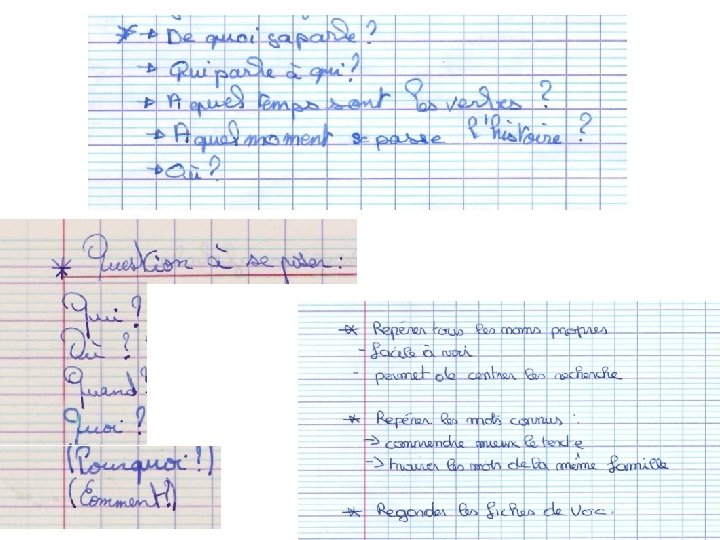 * → De quoi ça parle ?
→ Qui parle à qui ?
→ A quel temps sont les verbes ?
→ A quel moment se passe l'histoire ?
→ Où ?
* Question à se poser :
Qui ?
Où ?
Quand ?
Quoi ?
(Pourquoi !)
(Comment !)
* Repérer tous les noms propres
- facile à voir
- permet de centrer les recherche
* Repérer les mots connus :
-> comprendre mieux le texte
-> trouver les mots de la même famille
* Regarder les fiches de voc.